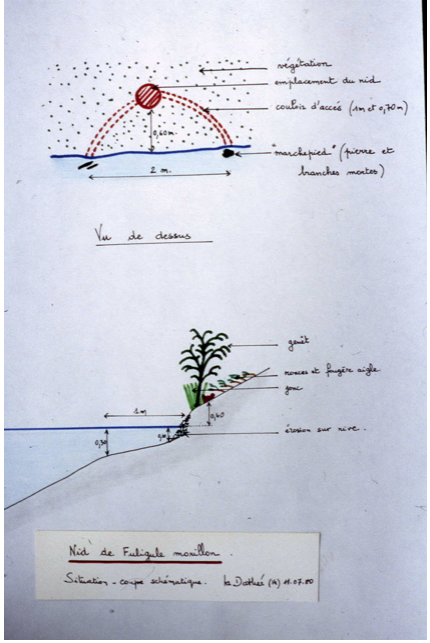 végétation
emplacement du nid
coulois d'accés (1m et 0,70m)
0,40m
"marchepied" (pierre et
branches mortes)
2 m.
Vu de dessus
genêt
ronces et fougère aigle
jonc
1m
0,40
0,30
érosion sur rive.
Nid de Fuligule morillon.
Situation - coupe schématique. la Dathée (14) 11.07.80